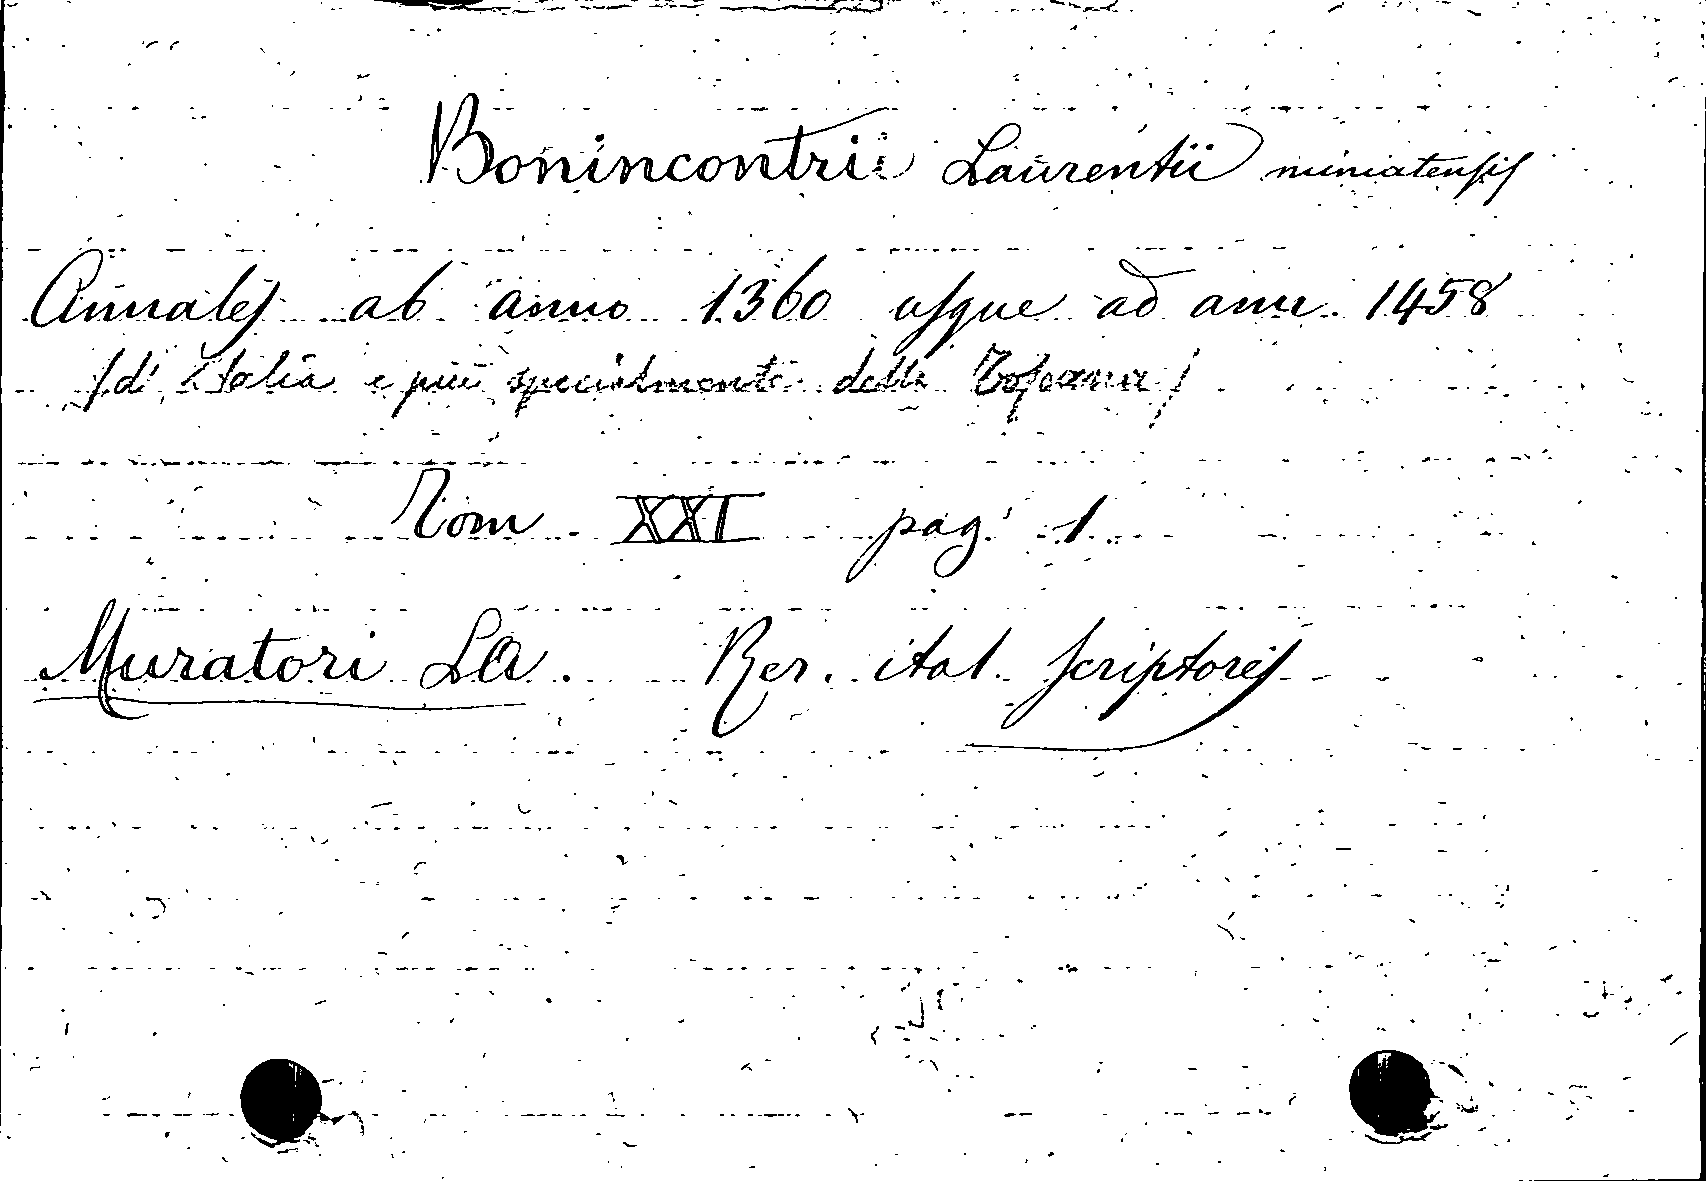 Bonincontrii Laurentii miniatensis
Annales ab anno 1360 usque ad ann. 1458
(d'Italia e più specialmente della Toscana)
Tom XXI pag. 1
Muratori LA. Rer. ital. scriptores